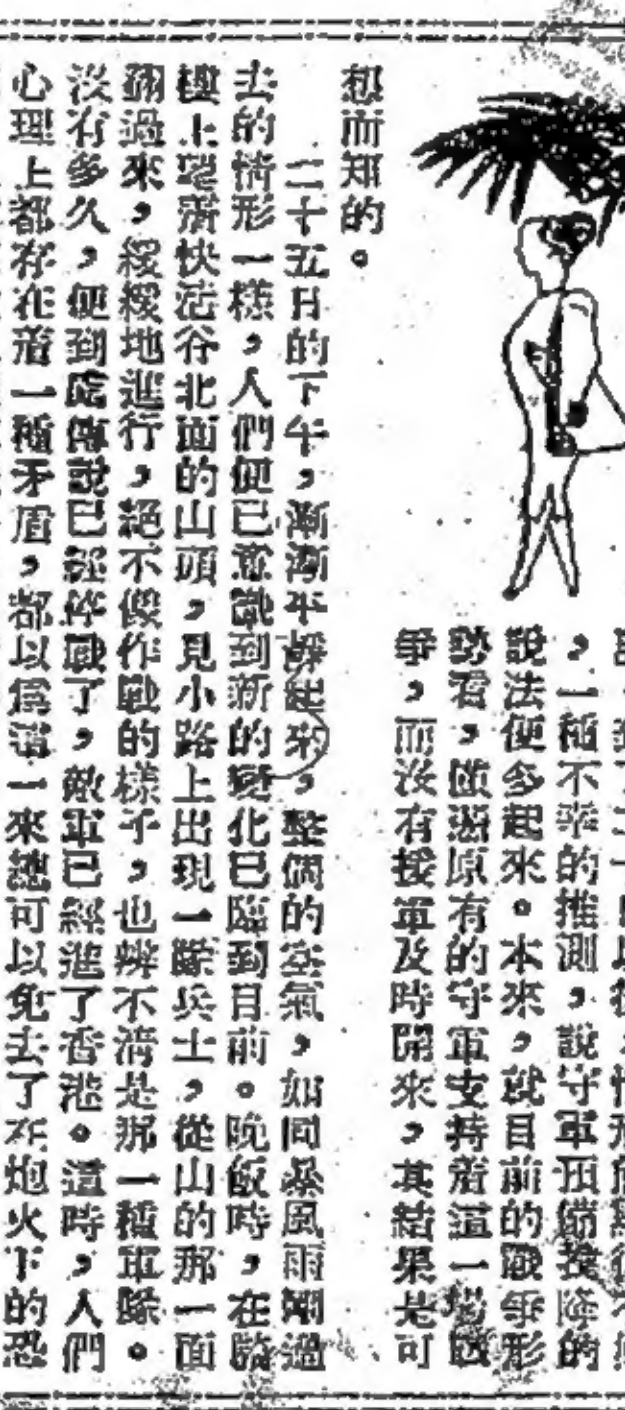 ，一種不幸的推測，說守軍預備投降的
說法便多起來。本來，就目前的戰爭形
勢看，僅憑原有的守軍支持着這一場戰
爭，而沒有援軍及時開來，其結果是可
想而知的。
二十五日的下午，漸漸平靜起來，整個的空氣，如同暴風雨剛過
去的情形一樣，人們便已意識到新的變化已臨到目前。晚飯時，在騎
樓上望着快活谷北面的山頭，見小路上出現一隊兵士，從山的那一面
翻過來，緩緩地進行，絕不像作戰的樣子，也辨不清是那一種軍隊。
沒有多久，便到處傳說已經停戰了，敵軍已經進了香港。這時，人們
心理上都存在着一種矛盾，都以為這一來總可以免去了在炮火下的恐